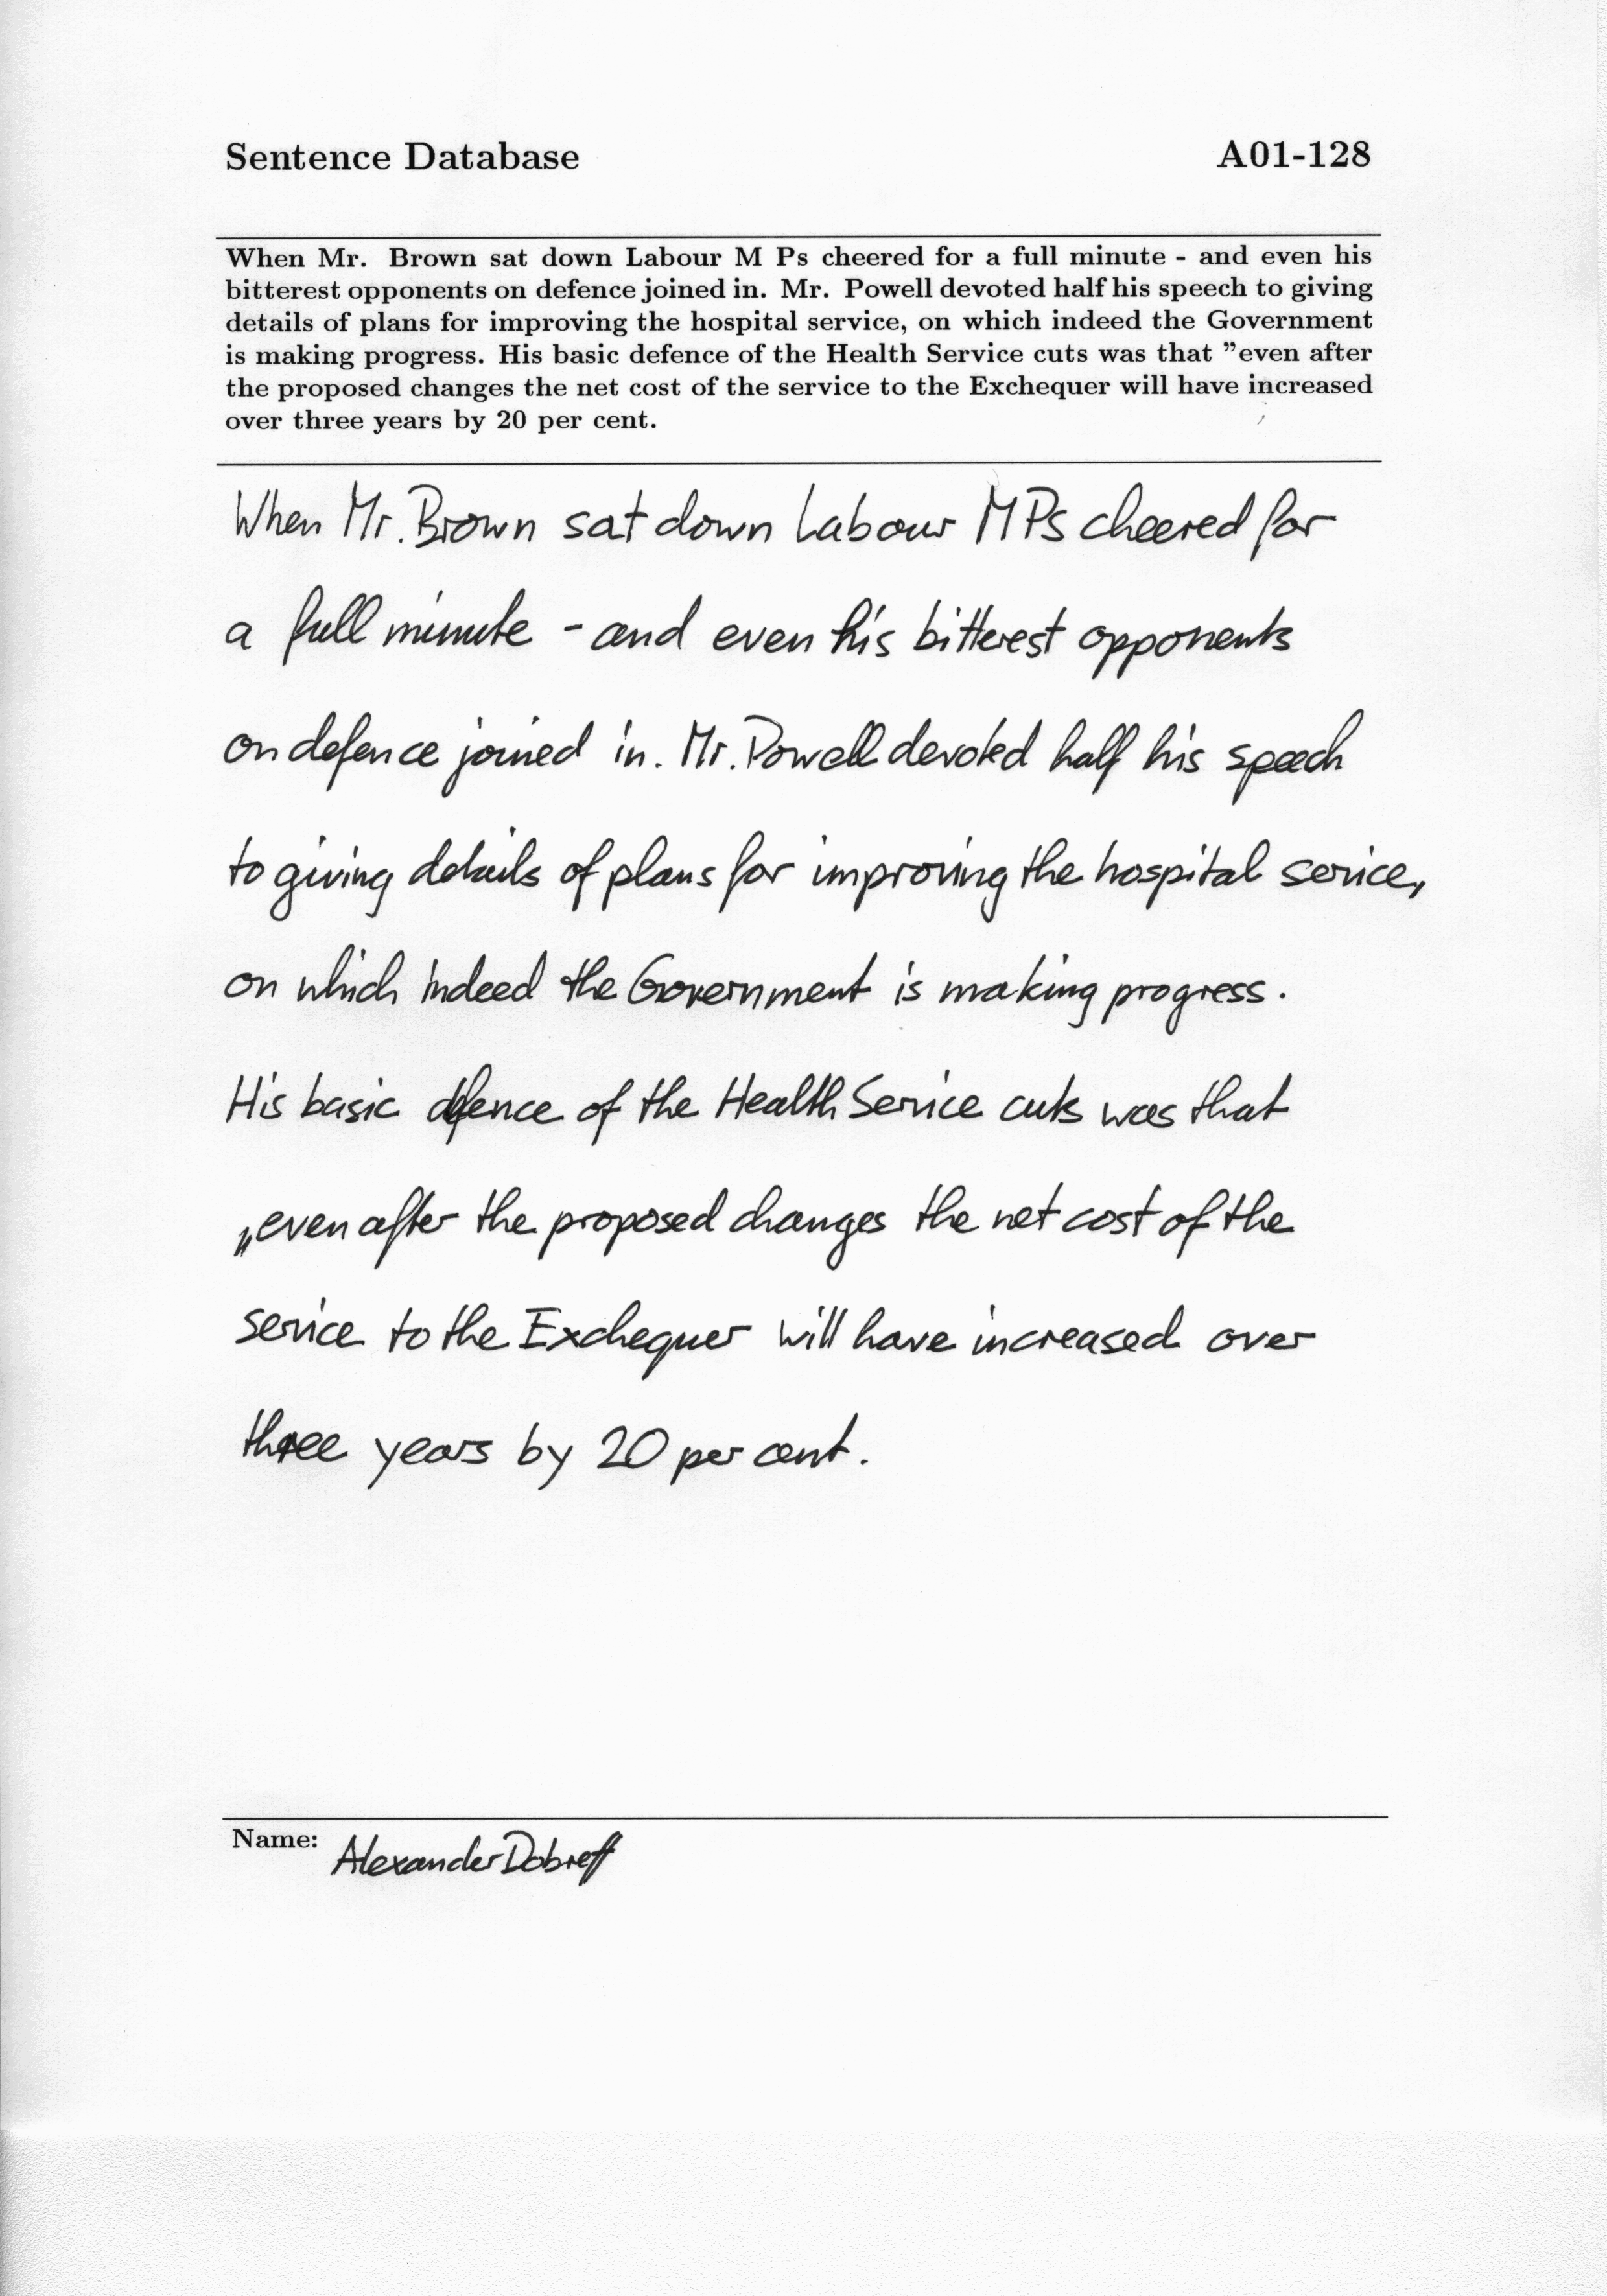 Sentence Database A01-128
When Mr. Brown sat down Labour M Ps cheered for a full minute - and even his
bitterest opponents on defence joined in. Mr. Powell devoted half his speech to giving
details of plans for improving the hospital service, on which indeed the Government
is making progress. His basic defence of the Health Service cuts was that ”even after
the proposed changes the net cost of the service to the Exchequer will have increased
over three years by 20 per cent.
When Mr. Brown sat down Labour MPs cheered for
a full minute - and even his bitterest opponents
on defence joined in. Mr. Powell devoted half his speech
to giving details of plans for improving the hospital service,
on which indeed the Government is making progress.
His basic defence of the Health Service cuts was that
„even after the proposed changes the net cost of the
service to the Exchequer will have increased over
three years by 20 per cent.
Name: Alexander Dobreff